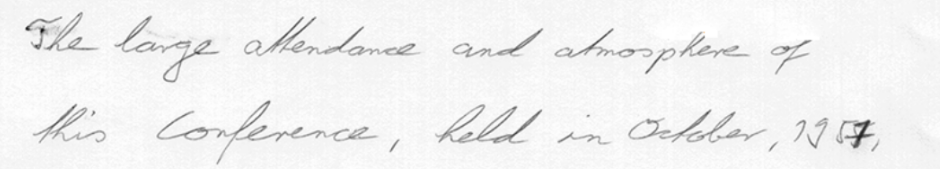 The large attendance and atmosphere of
this Conference, held in October, 1957,